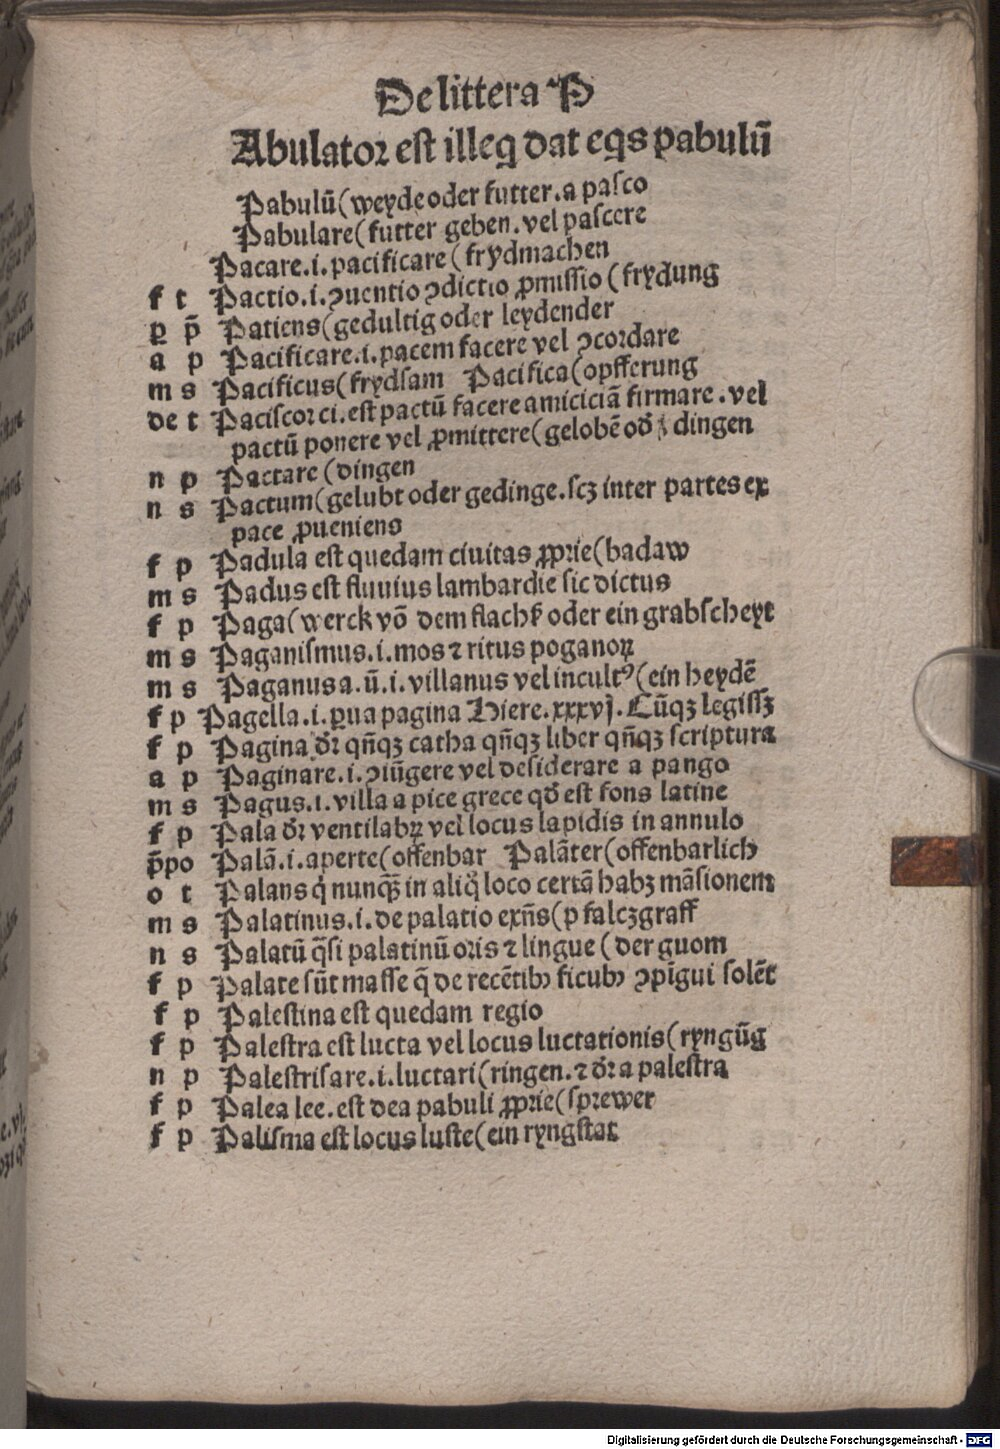 De littera P
Abulator est ille q̄ dat eq̄s pabulū
Pabulū(weyde oder futter.a pasco
Pabulare(futter geben.vel pascere
Pacare.i.pacificare(frydmachen
f t Pactio.i.ꝯuentio ꝯdictio ꝓmissio(frydung
ꝑ p̄ Patiens(gedultig oder leydender
a p Pacificare.i.pacem facere vel ꝯcordare
m s Pacificus(frydsam Pacifica(opfferung
de t Paciscor ci.est pactū facere amiciciā firmare.vel
pactū ponere vel ꝓmittere(gelobē od̓ dingen
n p Pactare(dingen
n s Pactum(gelubt oder gedinge.scꝫ inter partes ex
pace ꝓueniens
f p Padula est quedam ciuitas ꝓprie(badaw
m s Padus est fluuius lambardie sic dictus
f p Paga(werck vō dem flachß oder ein grabscheyt
m s Paganismus.i.mos ⁊ ritus poganoꝝ
m s Paganus a.ū.i.villanus vel incultꝰ(ein heydē
f p Pagella.i.ꝑua pagina Hiere.xxxvj.Cūqꝫ legissꝫ
f p Pagina d̓r qn̄qꝫ catha qn̄qꝫ liber qn̄qꝫ scriptura
a p Paginare.i.ꝯiūgere vel desiderare a pango
m s Pagus.i.villa a pice grece qd̓ est fons latine
f p Pala d̓r ventilabꝝ vel locus lapidis in annulo
p̄po Palā.i.aperte(offenbar Palāter(offenbarlich
o t Palans q̇ nunqꝫ̄ in aliq̇ loco certā habꝫ māsionem
m s Palatinus.i.de palatio exn̄s(pfalczgraff
n s Palatū q̄si palatinū oris ⁊ lingue(der guom
f p Palate sūt masse q̄ de recētibꝫ ficubꝫ ꝯpīgui solēt
f p Palestina est quedam regio
f p Palestra est lucta vel locus luctationis(ryngūg
n p Palestrisare.i.luctari(ringen.⁊ d̓r a palestra
f p Palea lee.est dea pabuli ꝓprie(sprewer
f p Palisma est locus luste(ein ryngstat
Digitalisierung gefördert durch die Deutsche Forschungsgemeinschaft - DFG